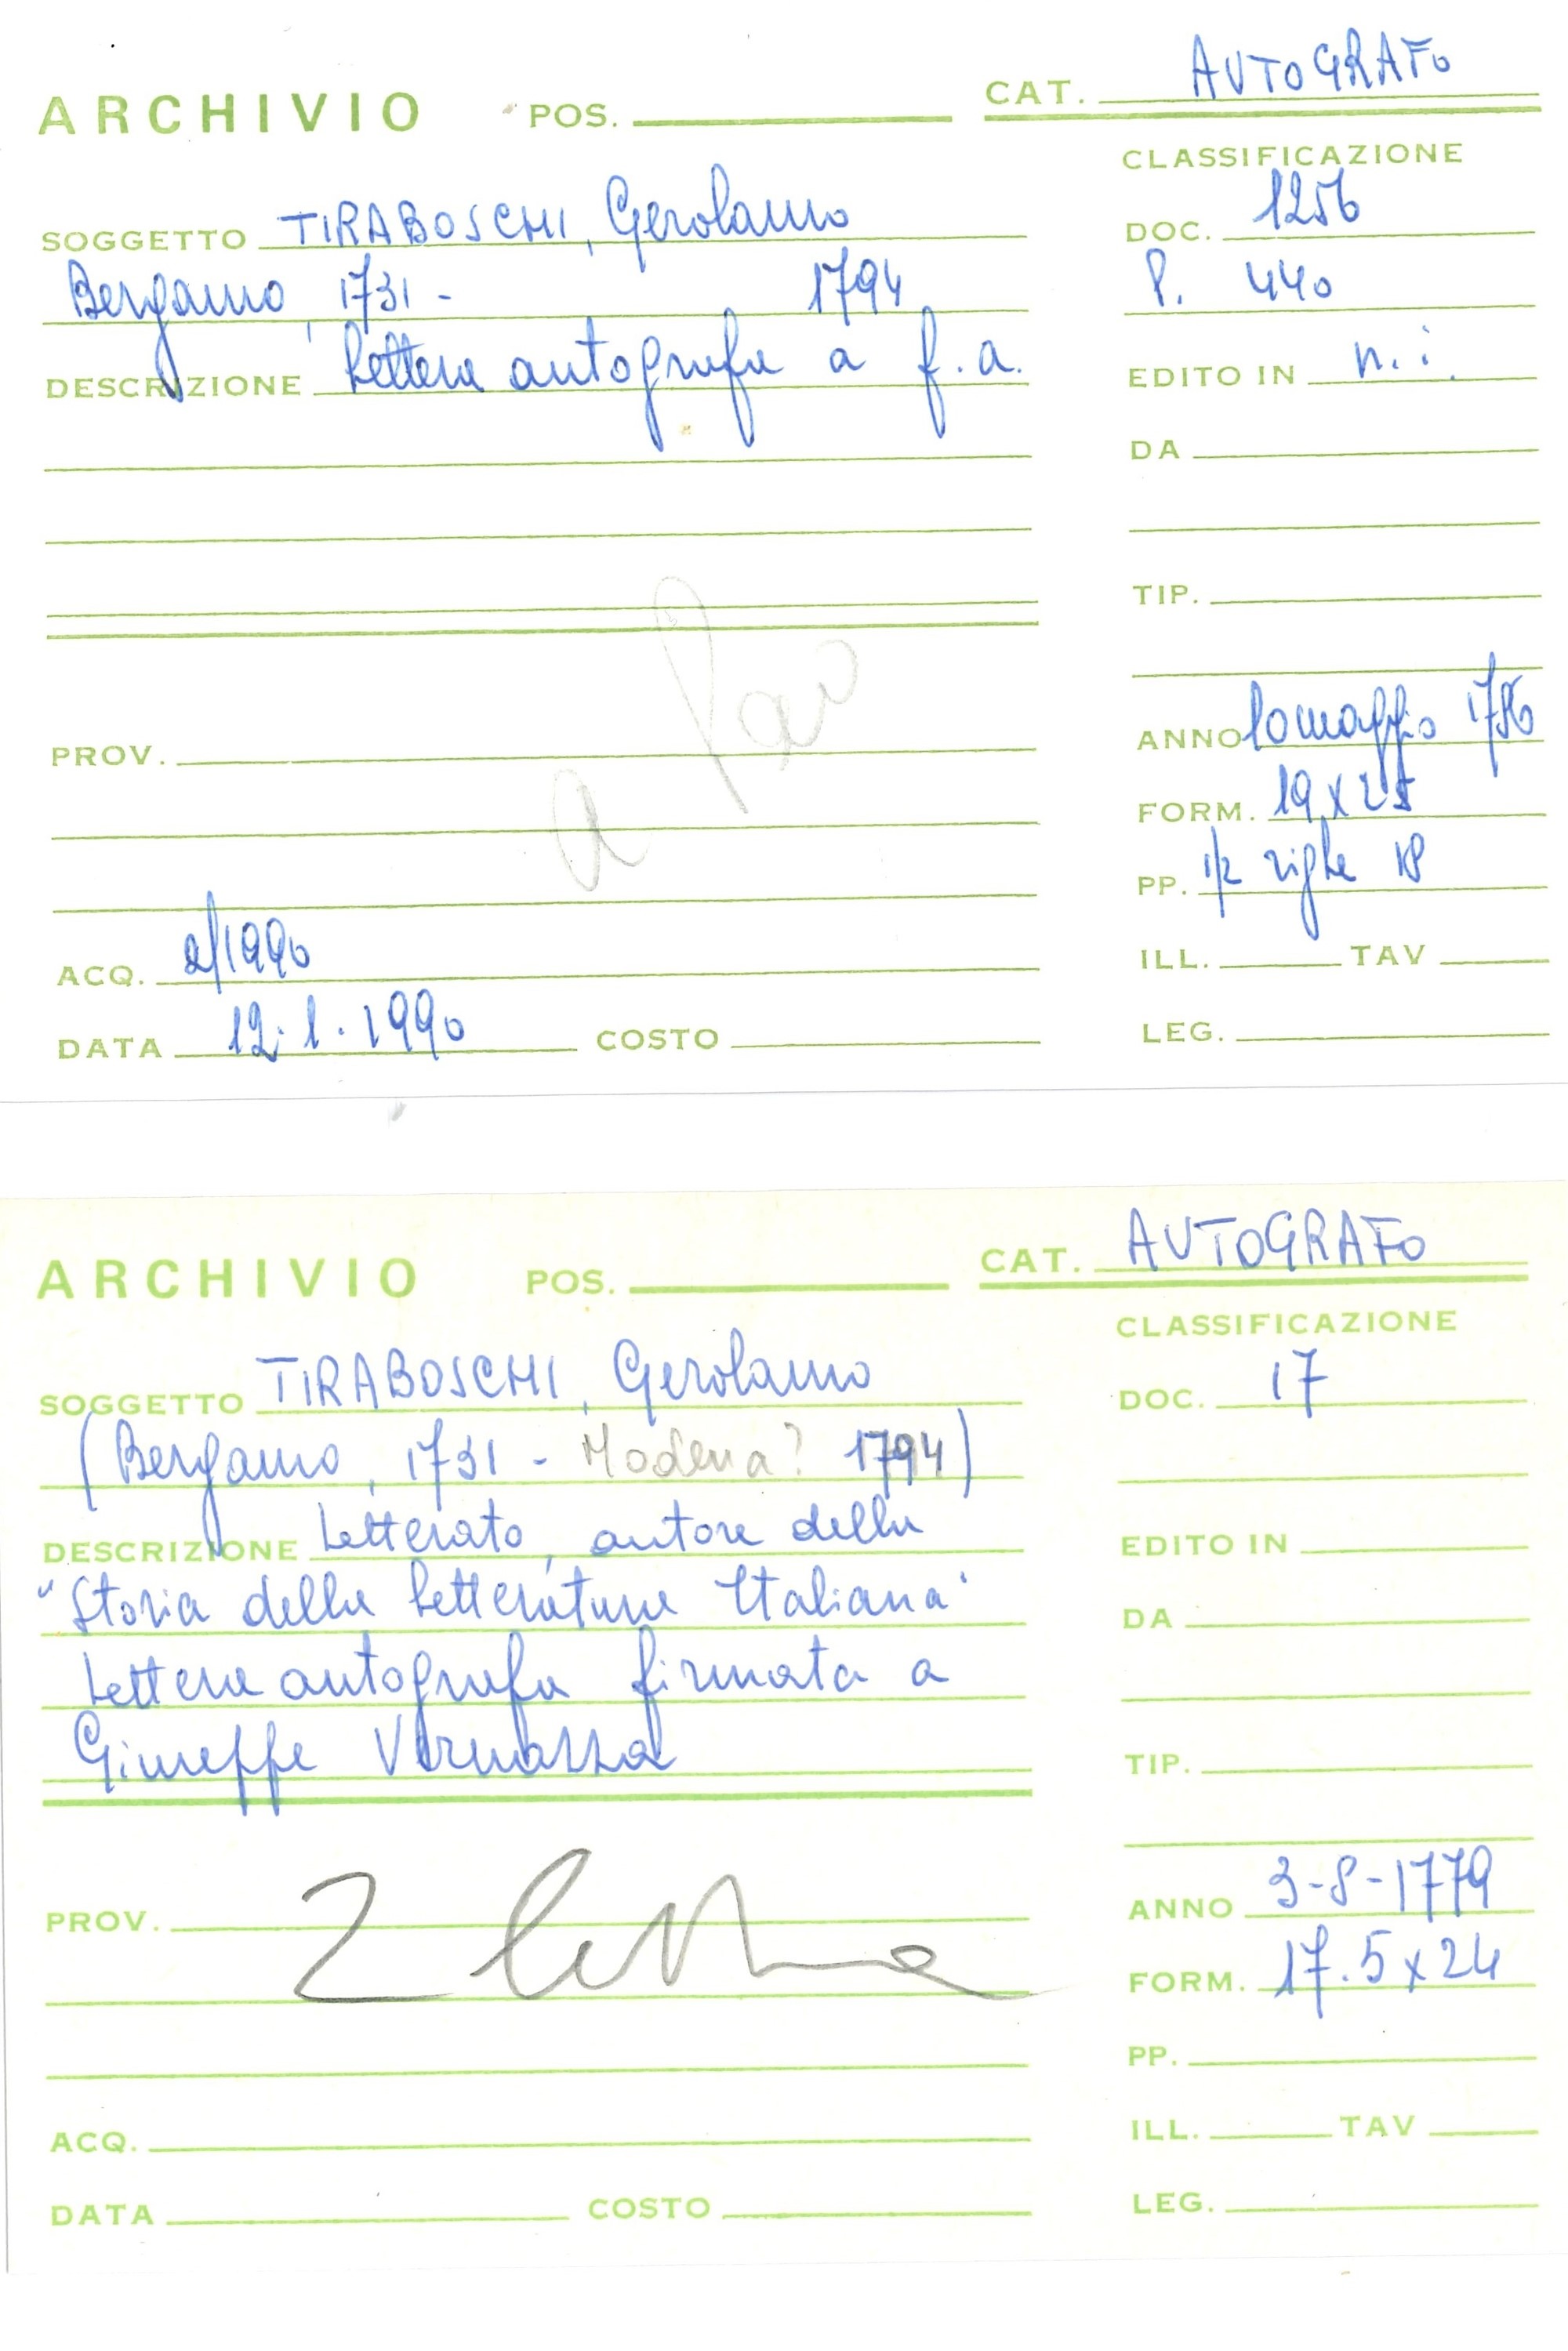 ARCHIVIO POS. CAT. AUTOGRAFO
CLASSIFICAZIONE
SOGGETTO TIRABOSCHI, Gerolamo DOC. 1256
Bergamo, 1731 - 1794 P. 440
DESCRIZIONE Lettera autografa a f.a. EDITO IN n.i.
DA
TIP.
PROV. ANNO 10 maggio
a FORM. 19 x
PP. 1/2 righe 18
ACQ. 2/1990 ILL. TAV
DATA 12.1.1990 COSTO LEG.
ARCHIVIO POS. CAT. AUTOGRAFO
CLASSIFICAZIONE
SOGGETTO TIRABOSCHI, Gerolamo DOC. 17
(Bergamo, 1731 - Modena? 1794)
DESCRIZIONE Letterato, autore della EDITO IN
"Storia della Letteratura Italiana" DA
Lettera autografa firmata a
Giuseppe Vernazza TIP.
ANNO 3-8-1779
PROV. 2 FORM. 17.5 x 24
PP.
ACQ. ILL. TAV
DATA COSTO LEG.